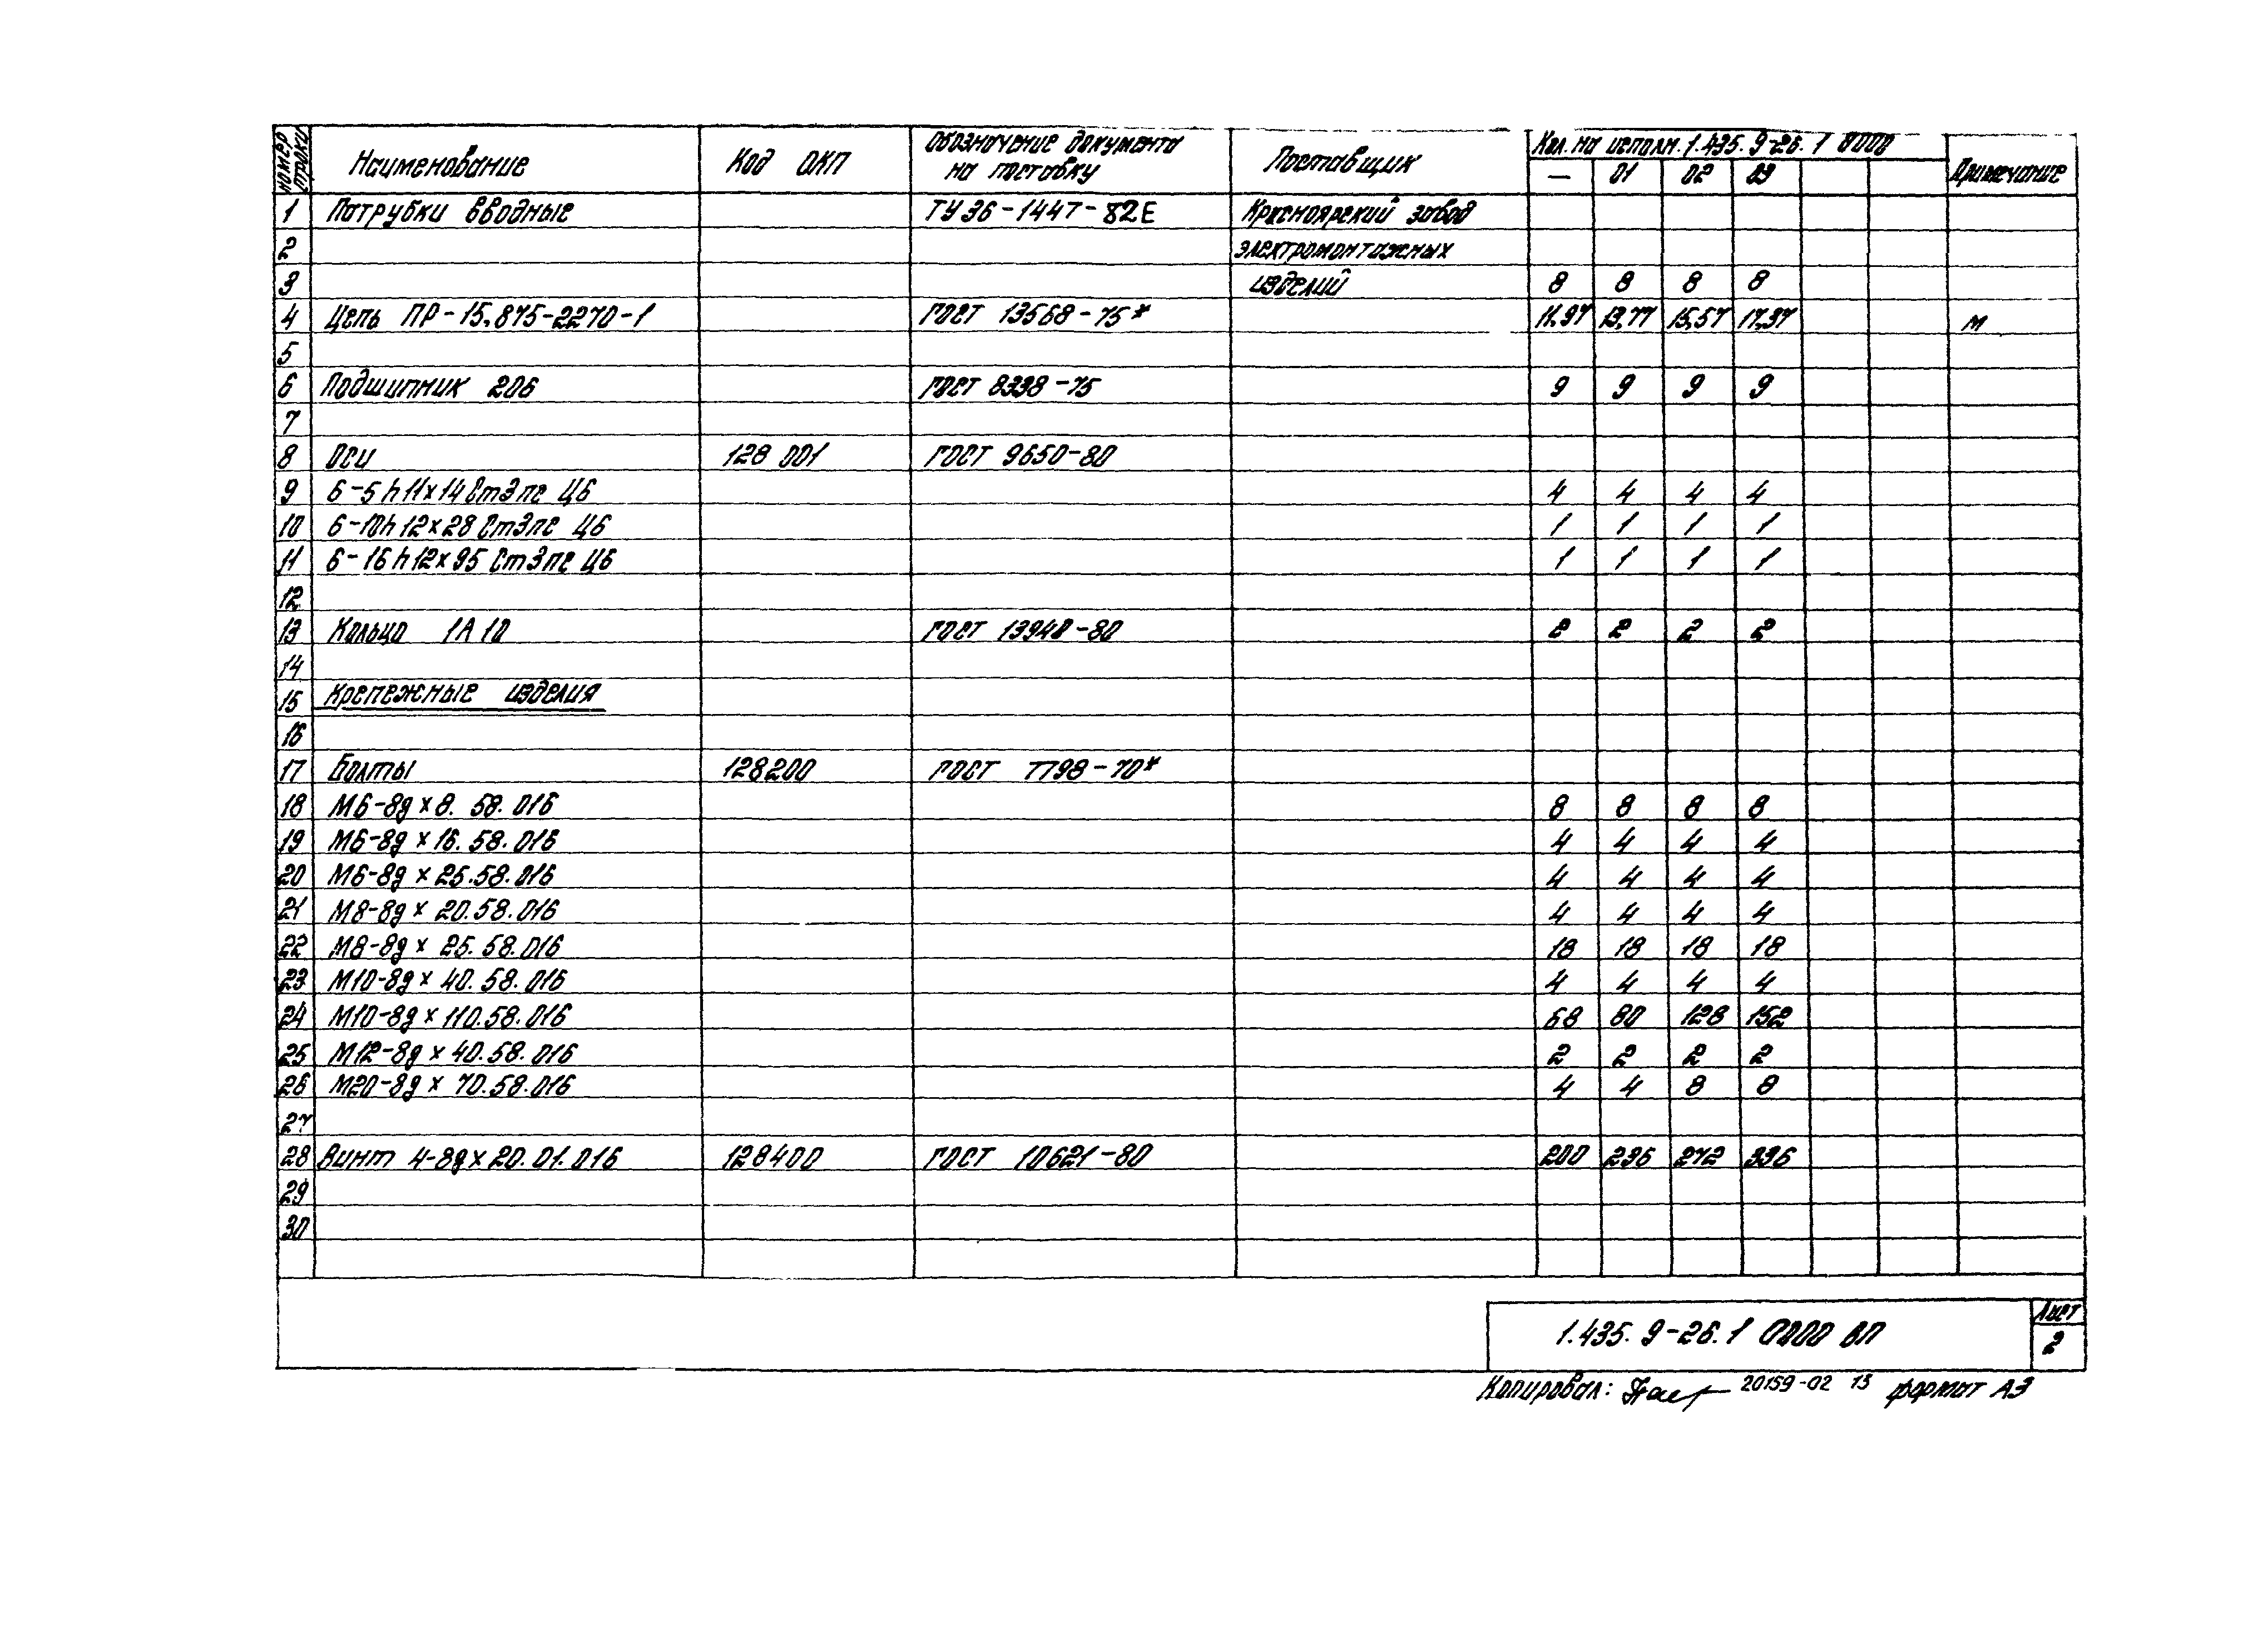 номер строки Наименование Код ОКП Обозначение документа на поставку Поставщик Кол. на исполн. 1.435.9-26.1 0000 Примечание
— 01 02 03
1 Патрубки вводные ТУ36-1447-82Е Красноярский завод
2 электромонтажных
3 изделий 8 8 8 8
4 Цепь ПР-15,875-2270-1 ГОСТ 13568-75* 11,97 13,77 15,57 17,37 м
5
6 Подшипник 206 ГОСТ 8338-75 9 9 9 9
7
8 Оси 128 001 ГОСТ 9650-80
9 6-5h11х14 Ст3пс Ц6 4 4 4 4
10 6-10h12х28 Ст3пс Ц6 1 1 1 1
11 6-16h12х95 Ст3пс Ц6 1 1 1 1
12
13 Кольцо 1А10 ГОСТ 13940-80 2 2 2 2
14
15 Крепежные изделия
16
17 Болты 128200 ГОСТ 7798-70*
18 М6-8g х 8. 58. 016 8 8 8 8
19 М6-8g х 16. 58. 016 4 4 4 4
20 М6-8g х 25.58.016 4 4 4 4
21 М8-8g х 20.58.016 4 4 4 4
22 М8-8g х 25.58.016 18 18 18 18
23 М10-8g х 40.58.016 4 4 4 4
24 М10-8g х 110.58.016 68 80 128 152
25 М12-8g х 40.58.016 2 2 2 2
26 М20-8g х 70.58.016 4 4 8 8
27
28 Винт 4-8g х 20.01.016 128400 ГОСТ 10621-80 200 236 272 336
29
30
1.435.9-26.1 0000 ВП Лист 2
Копировал: 20159-02 13 формат А3